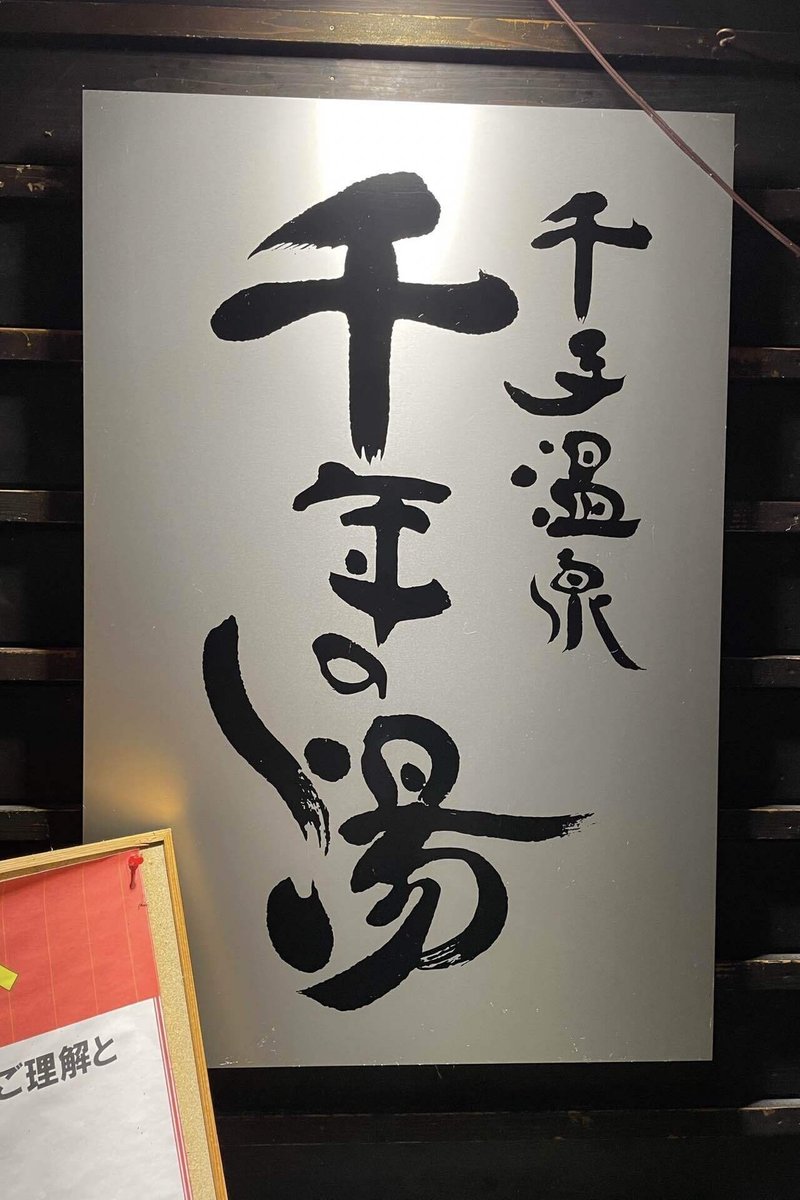 千子温泉
千年の湯
ご理解と